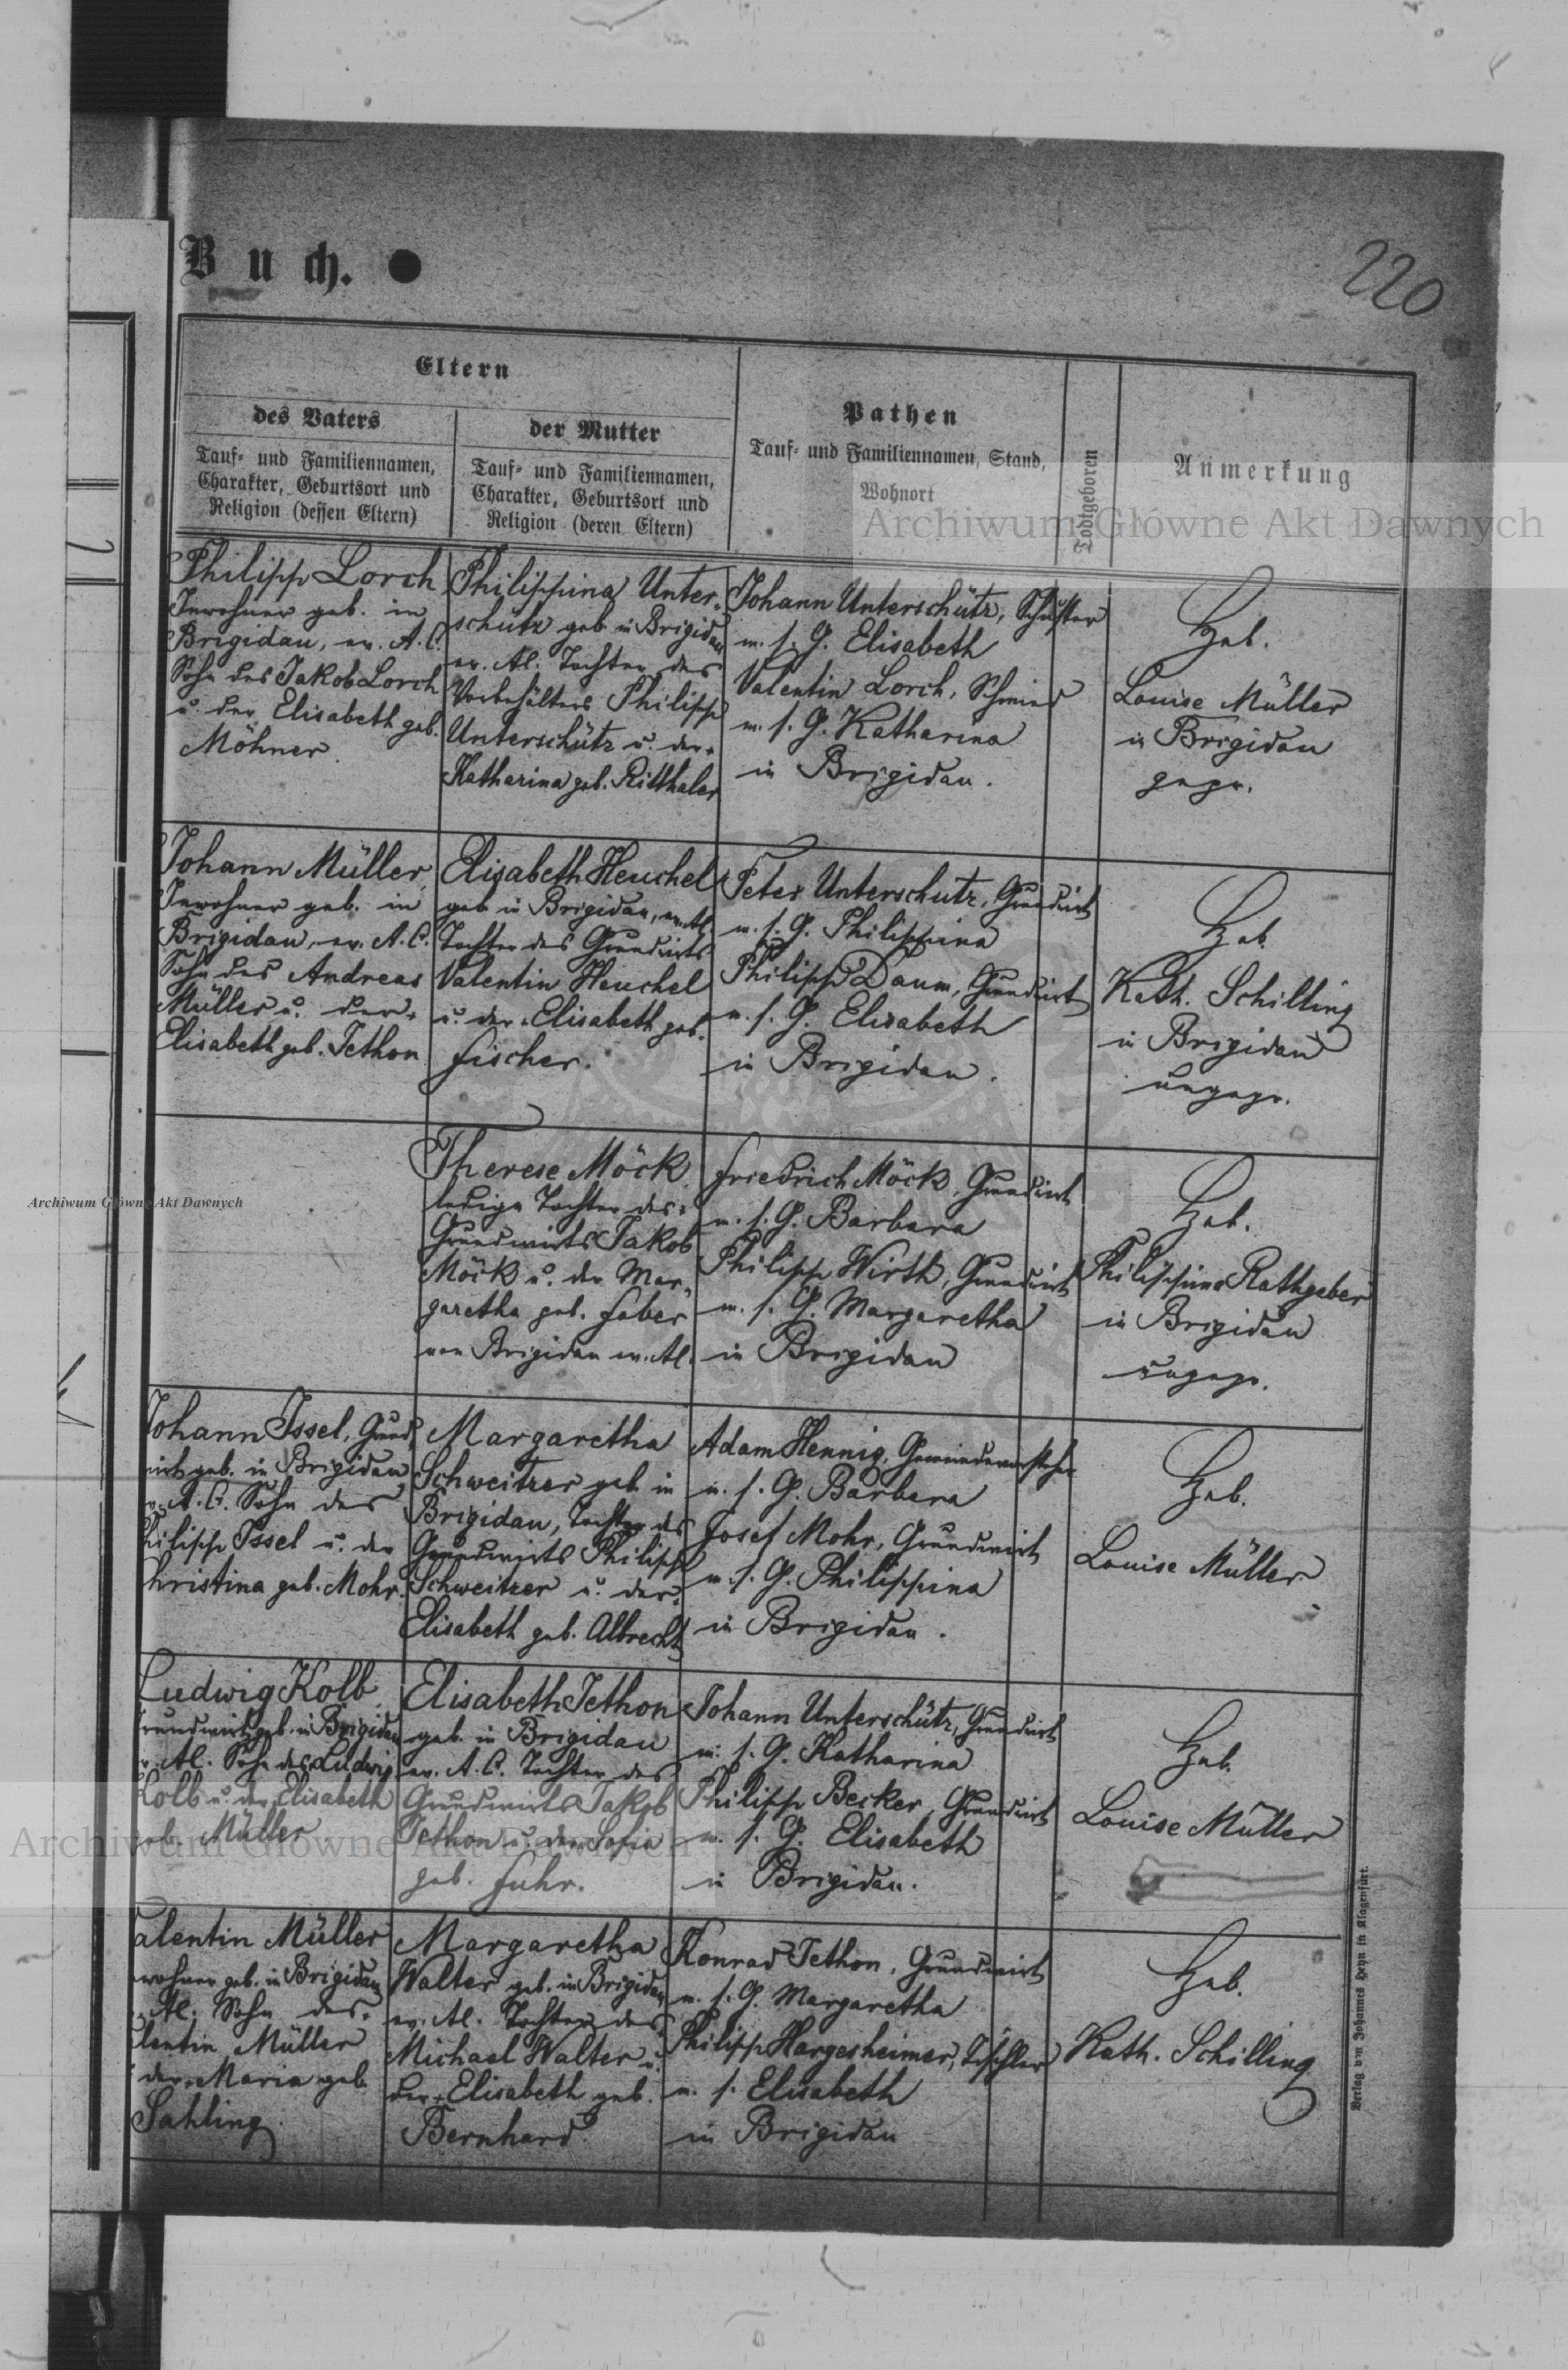 Buch.
220
Eltern
des Vaters
Tauf- und Familiennamen,
Charakter, Geburtsort und
Religion (dessen Eltern)
der Mutter
Tauf- und Familiennamen,
Charakter, Geburtsort und
Religion (deren Eltern)
Pathen
Tauf- und Familiennamen, Stand,
Wohnort
Todtgeboren
Anmerkung
Archiwum Główne Akt Dawnych
Philipp Lorch
Inwohner geb. in
Brigidau, ev. A. C.
Sohn des Jakob Lorch
u. der Elisabeth geb.
Möhner.
Philippina Unter-
schütz geb. in Brigidau
ev. A. Tochter des
Vorbehälters Philipp
Unterschütz u. der
Katharina geb. Ritthaler
Johann Unterschütz, Schuster
m. s. G. Elisabeth
Valentin Lorch, Schmied
m. s. G. Katharina
in Brigidau.
Heb.
Louise Müller
in Brigidau
gepr.
Johann Müller,
Inwohner geb. in
Brigidau, ev. A. C.
Sohn des Andreas
Müller u. der
Elisabeth geb. Jethon
Elisabeth Heuchel
geb. in Brigidau, ev. A.
Tochter des Grundwirts
Valentin Heuchel
u. der Elisabeth geb.
Fischer.
Peter Unterschutz, Grundwirt
m. s. G. Philippina
Philipp Daum, Grundwirt
m. s. G. Elisabeth
in Brigidau.
Heb.
Kath. Schilling
in Brigidau
ungepr.
Therese Möck,
ledige Tochter des
Grundwirts Jakob
Möck u. der Mar-
garetha geb. Faber
von Brigidau ev. A.
Friedrich Möck, Grundwirt
m. s. G. Barbara
Philipp Wirth, Grundwirt
m. s. G. Margaretha
in Brigidau
Heb.
Philippina Rathgeber
in Brigidau
ungepr.
Archiwum Główne Akt Dawnych
Johann Issel, Grund-
wirt geb. in Brigidau
A. C. Sohn des
Philipp Issel u. der
Christina geb. Mohr.
Margaretha
Schweitzer geb. in
Brigidau, Tochter des
Grundwirts Philipp
Schweitzer u. der
Elisabeth geb. Albrecht
Adam Hennig, Gemeindevorsteher
m. s. G. Barbara
Josef Mohr, Grundwirt
m. s. G. Philippina
in Brigidau.
Heb.
Louise Müller
Ludwig Kolb,
Grundwirt geb. in Brigidau
A. Sohn des Ludwig
Kolb u. der Elisabeth
geb. Müller
Elisabeth Jethon
geb. in Brigidau
ev. A. C. Tochter des
Grundwirts Jakob
Jethon u. der Sofia
geb. Fuhr.
Johann Unterschütz, Grundwirt
m. s. G. Katharina
Philipp Becker, Grundwirt
m. s. G. Elisabeth
in Brigidau.
Heb.
Louise Müller
Archiwum Główne Akt Dawnych
Valentin Müller
Inwohner geb. in Brigidau
A. Sohn des
Valentin Müller
der Maria geb.
Sahling.
Margaretha
Walter geb. in Brigidau
ev. A. Tochter des
Michael Walter u.
der Elisabeth geb.
Bernhard
Konrad Jethon, Grundwirt
m. s. G. Margaretha
Philipp Hargesheimer, Tischler
m. s. Elisabeth
in Brigidau
Heb.
Kath. Schilling
Verlag von Johannes Heyn in Klagenfurt.